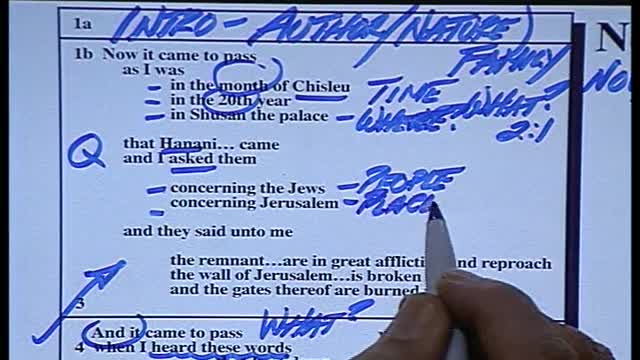 1a INTRO - AUTHOR/NATURE)
1b Now it came to pass
as I was
FAMILY
in the month of Chisleu TIME
in the 20th year WHAT?
in Shushan the palace - WHERE? 2:1
Q that Hanani... came
and I asked them
concerning the Jews - PEOPLE
concerning Jerusalem - PLAC
and they said unto me
the remnant...are in great afflicti nd reproach
the wall of Jerusalem...is broken
and the gates thereof are burned
3
And it came to pass WHAT?
4 when I heard these words
N
NO